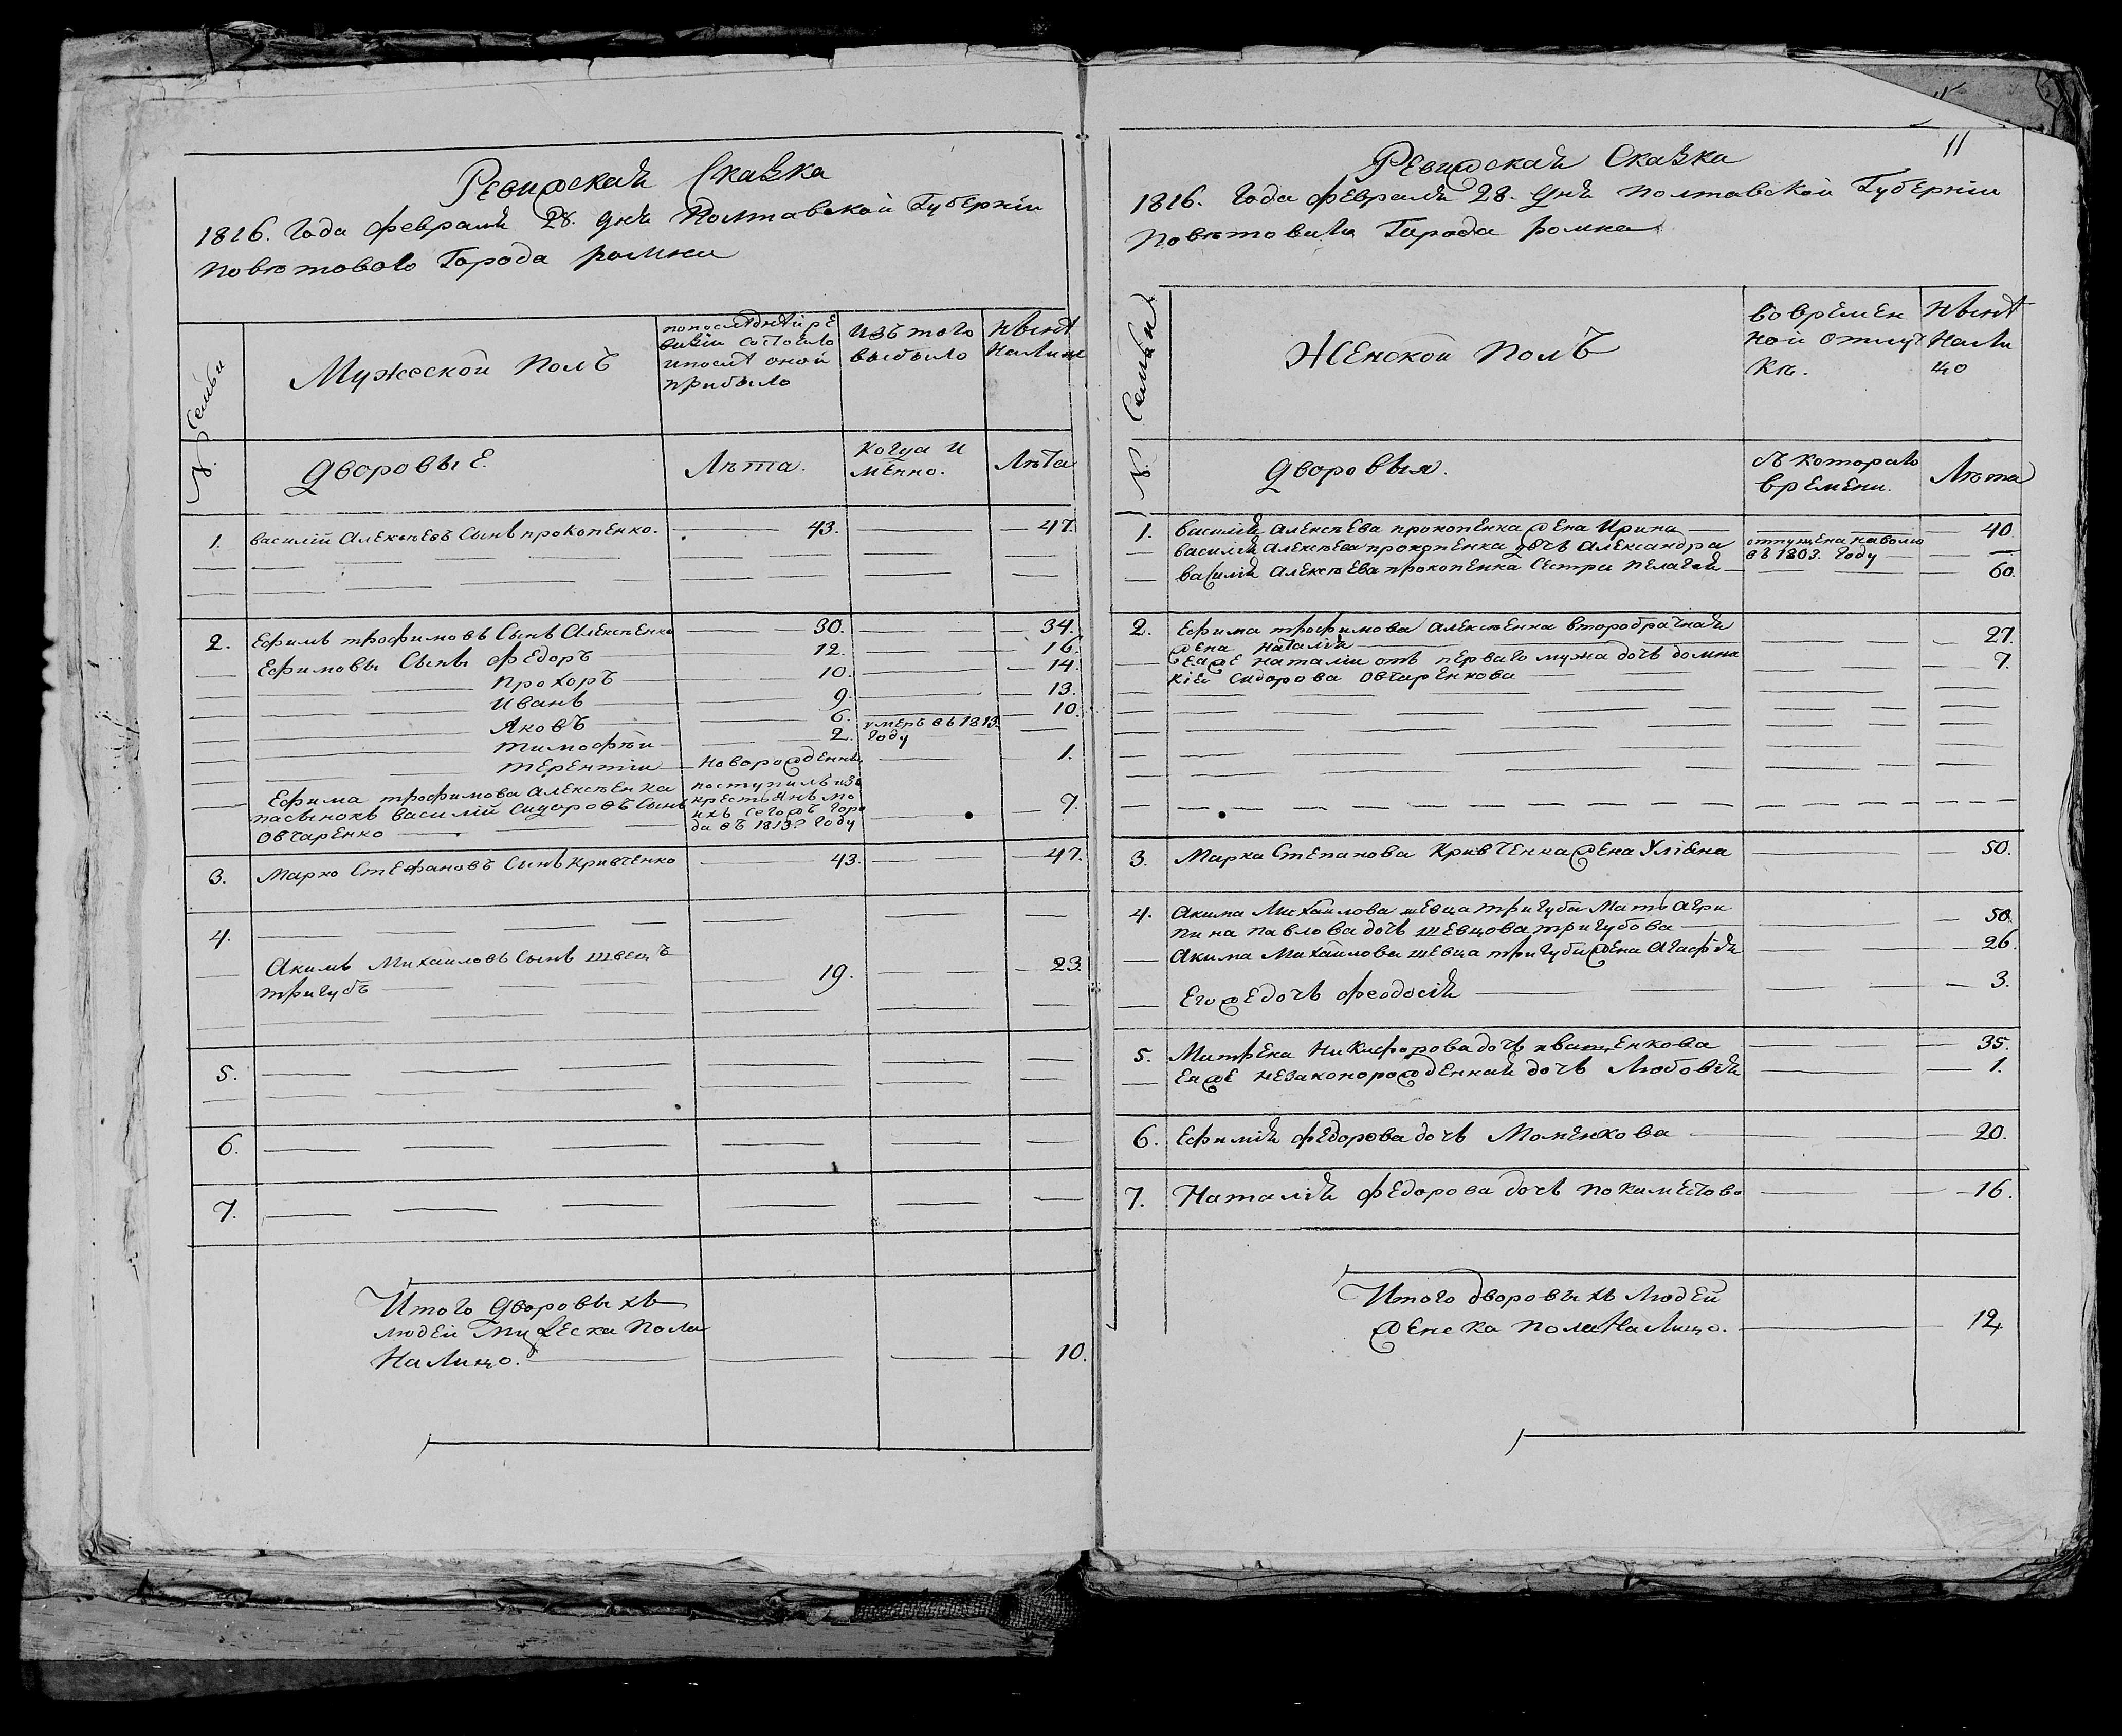 Ревижская Сказка
1816. Года Февраля 28. дня Полтавской Губернiи
Повѣтового Города ромна
№ Семьи
Мужеской Полъ
попослѣднѣй ре
визiи состояло
ипослѣ оной
прибыло
Изъ того
выбыло
Нынѣ
Налицо
Дворовые.
Лѣта.
Когда И
мянно.
Лѣта
1. василiй Алексѣевъ Сынъ прокопенко. 43. 47.
2. Ефимъ трофимовъ Сынъ Алексѣенко 30. 34.
Ефимовы Сыны Федоръ 12. 16.
Прохоръ 10. 14.
Иванъ 9. 13.
Яковъ 6. 10.
Тимофѣй 2. умеръ въ 1813.
Году
Терентiи Новорожденны 1.
Ефима трофимова Алексѣенка
пасынокъ василiй Сидоровъ Сынъ
Овчаренко
поступилъ изъ
крестьянъ мо
ихъ сегожъ горо
да въ 1813? Году
7.
3. Марко Стефановъ Сынъ Кривченко 43. 47.
4.
Акимъ Михайловъ Сынъ швецъ
тригубъ 19. 23.
5.
6.
7.
Итого Дворовыхъ
людей мужеска пола
Налицо. 10.
11
Ревижская Сказка
1816. Года Февраля 28. Дня Полтавской Губернiи
Повѣтоваго Города ромна
№ Семьи
Женской Полъ
Вовремен
ной отлуч
кѣ.
Нынѣ
Нали
цо
Дворовыя.
Съ котораго
времени.
Лѣта
1. василiя Алексѣева прокопенка жена Ирина 40.
василiя Алексѣева прокопенка дочь Александра
отпущена наволю
въ 1803. Году
василiя Алексѣева прокопенка Сестра Пелагея 60.
2. Ефима трофимова Алексѣенка второбрачная
жена Наталiя 27.
Еяже наталiи отъ перваго мужа дочь домна 7.
кiя Сидорова Овчаренкова
3. Марка Степанова Кривченка жена Улiяна 50.
4. Акима Михайлова шевца тригуба Мать Агри
пина павлова дочь шевцова тригубова 50.
Акима Михайлова шевца тригуба жена Агафiя 26.
Егоже дочь Феодосiя 3.
5. Матрена Никифорова дочь иващенкова 35.
Еяже незаконорожденная дочь Любовiя 1.
6. Ефимiя Федорова дочь Моменкова 20.
7. Наталiя Федорова дочь покаместова 16.
Итого дворовыхъ людей
женска пола Налицо. 12.